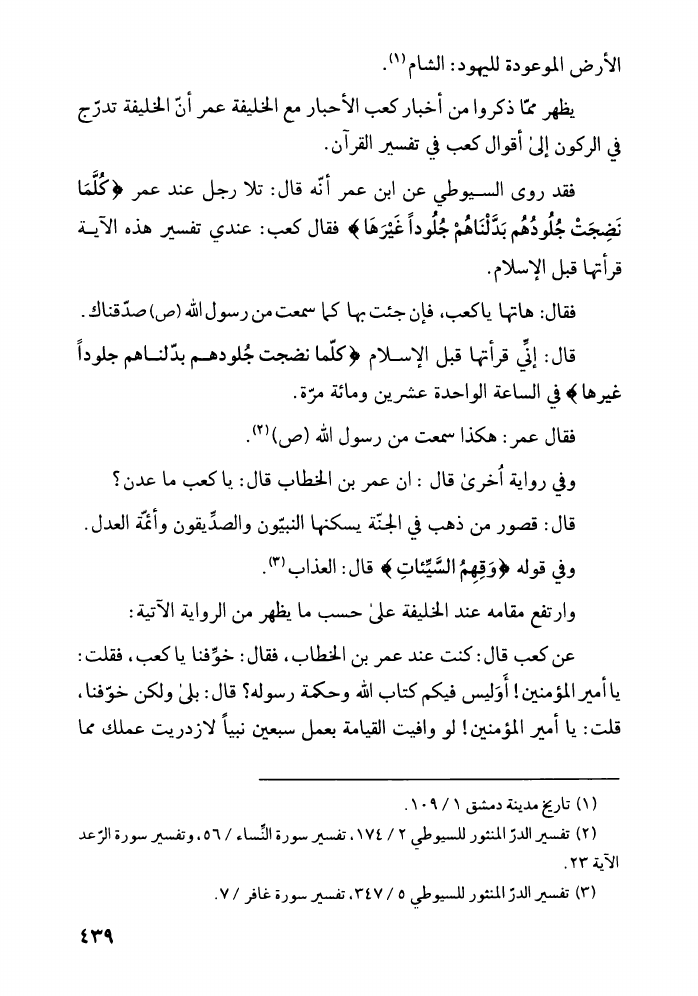 الأرض الموعودة لليهود: الشام(١).
يظهر ممّا ذكروا من أخبار كعب الأحبار مع الخليفة عمر أنّ الخليفة تدرّج
في الركون إلىٰ أقوال كعب في تفسير القرآن.
فقد روى السيوطي عن ابن عمر أنّه قال: تلا رجل عند عمر ﴿كُلَّمَا
نَضِجَتْ جُلُودُهُم بَدَّلْنَاهُمْ جُلُوداً غَيْرَهَا﴾ فقال كعب: عندي تفسير هذه الآية
قرأتها قبل الإسلام.
فقال: هاتها ياكعب، فإن جئت بها كما سمعت من رسول الله (ص) صدّقناك.
قال: إنِّي قرأتها قبل الإسلام ﴿كلّما نضجت جُلودهم بدّلناهم جلوداً
غيرها﴾ في الساعة الواحدة عشرين ومائة مرّة.
فقال عمر: هكذا سمعت من رسول الله (ص)(٢).
وفي رواية اُخرىٰ قال : ان عمر بن الخطاب قال: يا كعب ما عدن؟
قال: قصور من ذهب في الجنّة يسكنها النبيّون والصدِّيقون وأئمّة العدل.
وفي قوله ﴿وَقِهِمُ السَّيِّئاتِ﴾ قال: العذاب(٣).
وارتفع مقامه عند الخليفة علىٰ حسب ما يظهر من الرواية الآتية:
عن كعب قال: كنت عند عمر بن الخطاب، فقال: خوِّفنا يا كعب، فقلت:
يا أمير المؤمنين! أَوَليس فيكم كتاب الله وحكمة رسوله؟ قال: بلىٰ ولكن خوّفنا،
قلت: يا أمير المؤمنين! لو وافيت القيامة بعمل سبعين نبياً لازدريت عملك مما
(١) تاريخ مدينة دمشق ١ / ١٠٩.
(٢) تفسير الدرّ المنثور للسيوطي ٢ / ١٧٤، تفسير سورة النِّساء / ٥٦، وتفسير سورة الرّعد
الآية ٢٣.
(٣) تفسير الدرّ المنثور للسيوطي ٥ / ٣٤٧، تفسير سورة غافر / ٧.
٤٣٩